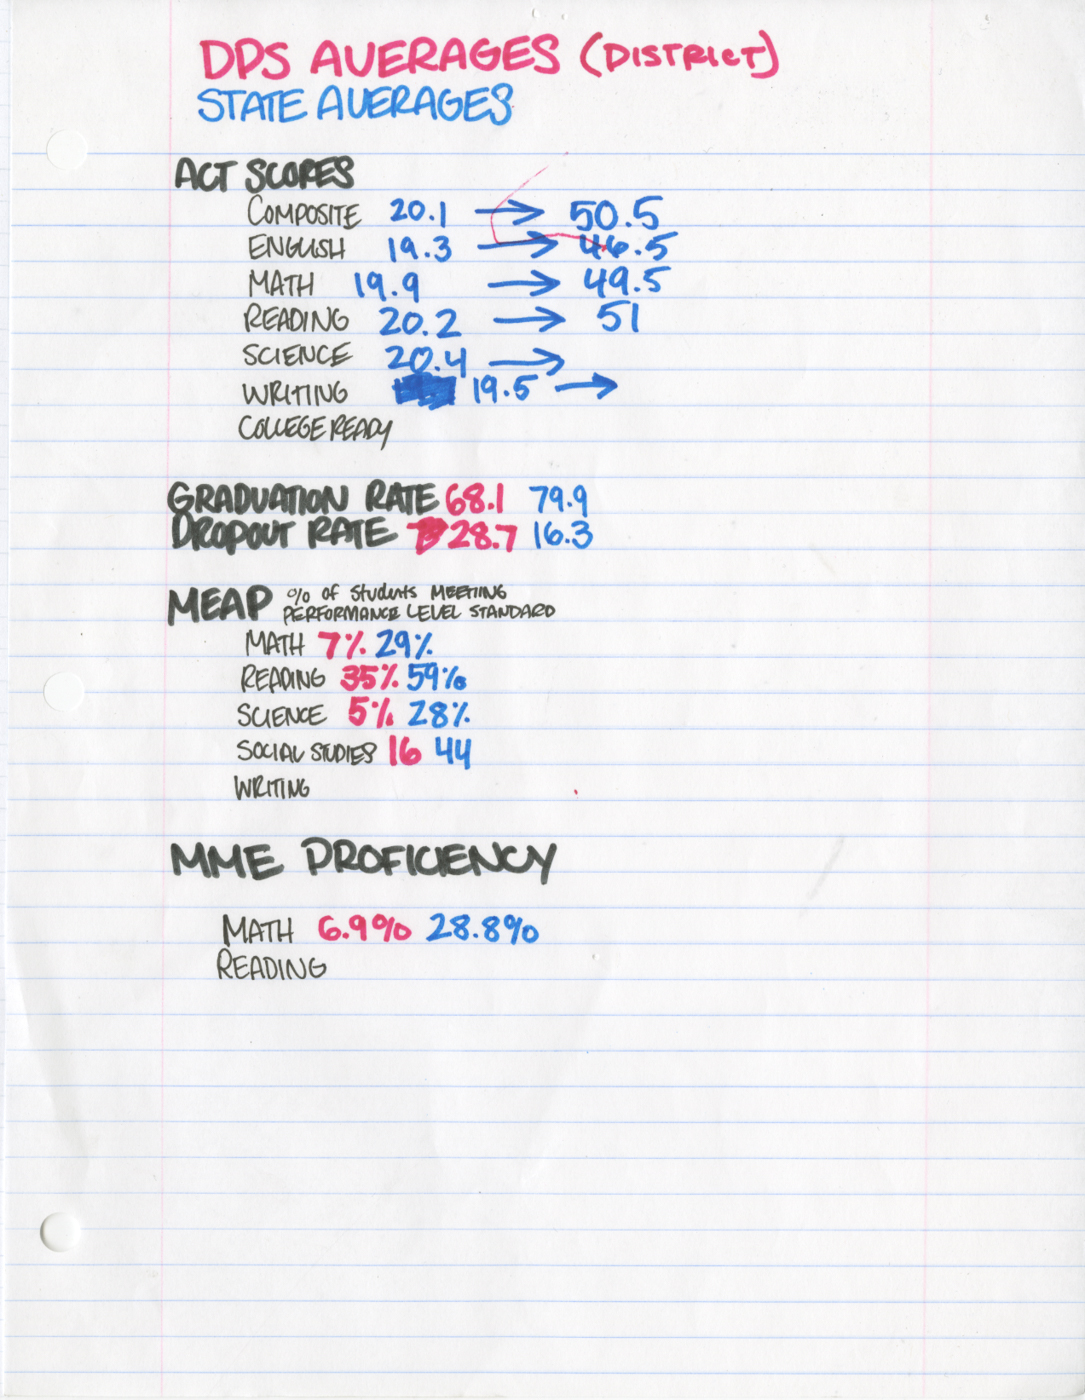 DPS AVERAGES (DISTRICT)
STATE AVERAGES
ACT SCORES
COMPOSITE 20.1 → 50.5
ENGLISH 19.3 → 46.5
MATH 19.9 → 49.5
READING 20.2 → 51
SCIENCE 20.4 →
WRITING 19.5 →
COLLEGE READY
GRADUATION RATE 68.1 79.9
DROPOUT RATE 28.7 16.3
MEAP % of Students MEETING
PERFORMANCE LEVEL STANDARD
MATH 7% 29%
READING 35% 59%
SCIENCE 5% 28%
SOCIAL STUDIES 16 44
WRITING
MME PROFICIENCY
MATH 6.9% 28.8%
READING